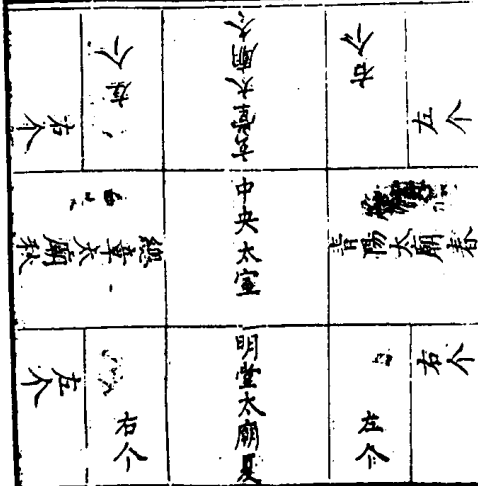 左个
右个
玄堂太廟冬
左个
右个
青陽太廟春
中央太室
總章太廟秋
右个
左个
明堂太廟夏
右个
左个